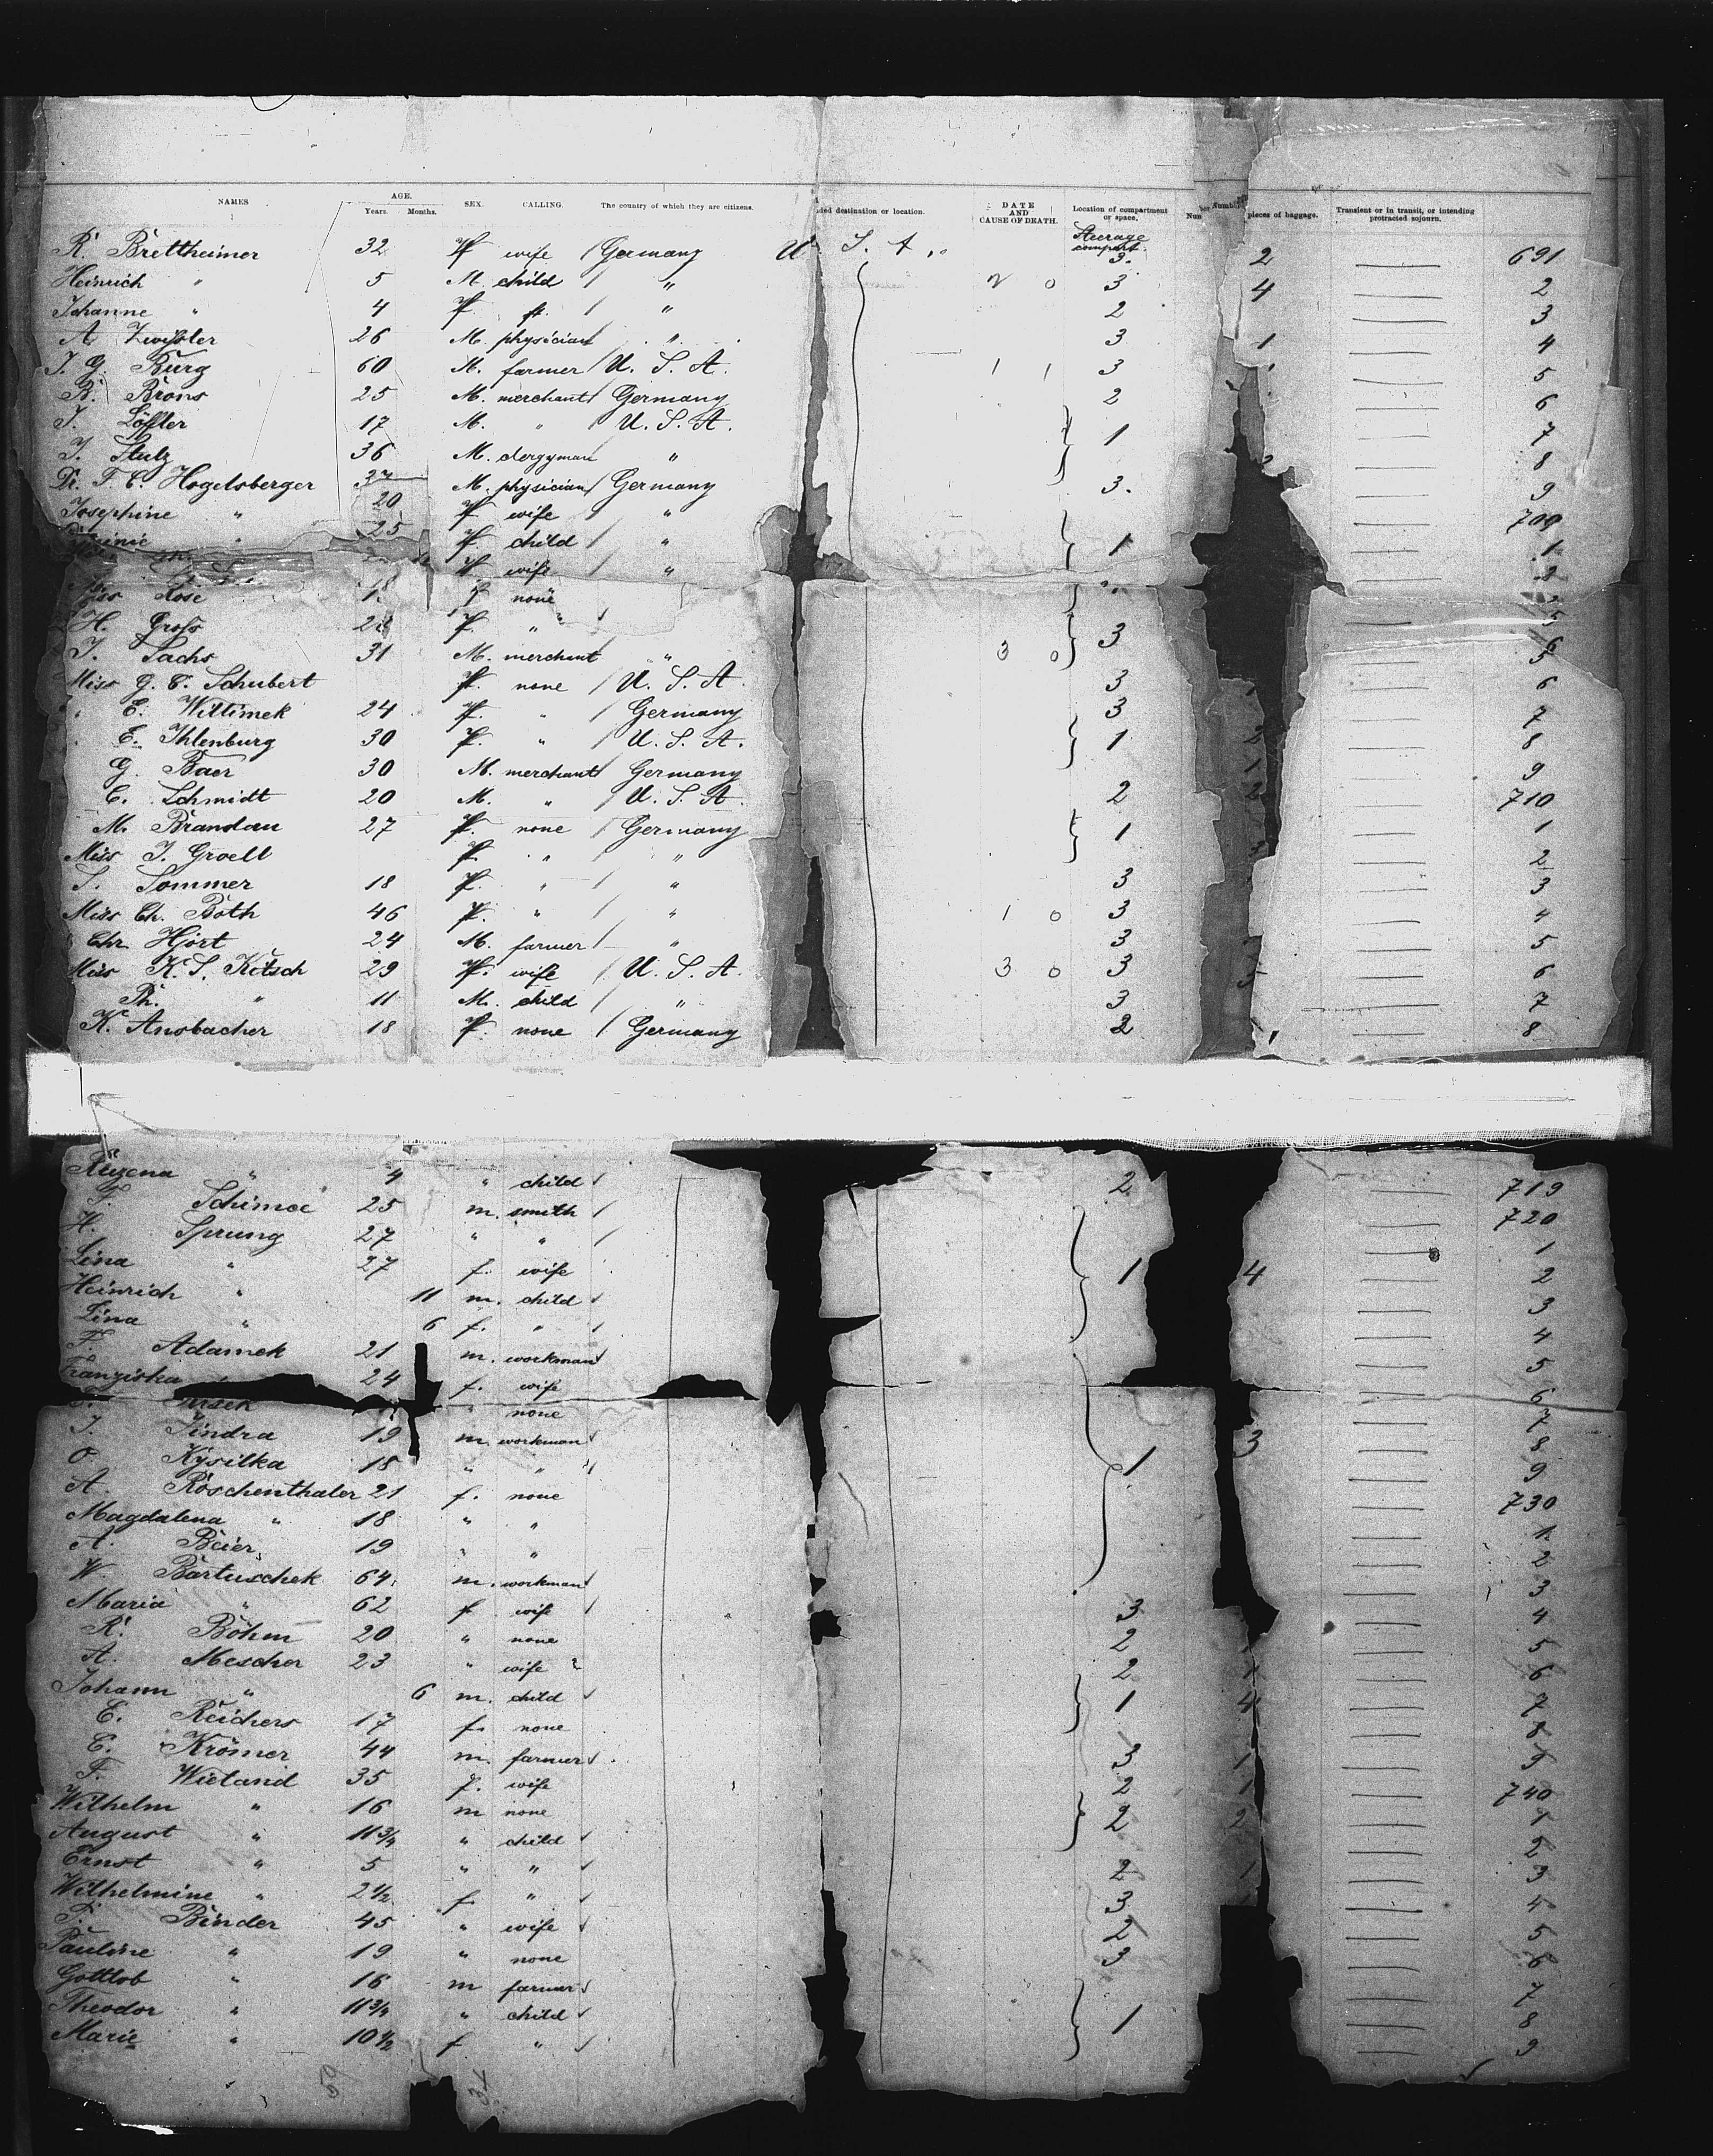 NAMES AGE. Years. Months. SEX. CALLING. The country of which they are citizens. ded destination or location. DATE AND CAUSE OF DEATH. Location of compartment or space. Num ber Number pieces of baggage. Transient or in transit, or intending protracted sojourn.
R. Brettheimer 32 f wife / Germany U. S. A. Steerage compart. 3. 2 — 691
Heinrich " 5 M. child / " 2 0 3 4 — 2
Johanne " 4 f. " / " 2 — 3
A. Zwissler 26 M. physician " 3 1 — 4
J. G. Burg 60 M. farmer / U. S. A. 1 1 3 — 5
R. Brons 25 M. merchant / Germany 2 — 6
J. Löffler 17 M. " / U. S. A. 1 — 7
J. Stutz 36 M. clergyman " — 8
Dr. F. C. Hogelsberger M. physician / Germany 3. — 9
Josephine " 20 f. wife / " — 700
" 25 f. child / " 1 — 1
f. wife / " — 2
Miss Rose f none
H. Gross f. " — 5
J. Sachs 31 M. merchant " 3 0 3 — 6
Miss G. C. Schubert f. none / U. S. A. 3 — 6
" E. Wittimek 24 f. " / Germany 3 — 7
" E. Ihlenburg 30 f. " / U. S. A. 1 2 — 8
G. Baer 30 M. merchant Germany 1 — 9
C. Schmidt 20 M. " / U. S. A. 2 2 — 710
M. Brandau 27 f. none / Germany 1 — 1
Miss J. Groell f. " / " — 2
S. Sommer 18 f. " / " 3 — 3
Miss Ch. Both 46 f. " / " 1 0 3 — 4
Chr. Hjort 24 M. farmer / " 3 — 5
Miss K. S. Kitsch 29 f. wife / U. S. A. 3 0 3 — 6
Ph. " 11 M. child / " 3 — 7
K. Ansbacher 18 f. none / Germany 2 1 — 8
Ruzena " 4 " child √ 2 — 719
F. Schimce 25 m. smith / — 720
H. Sprung 27 " " / — 1
Lina " 27 f. wife 1 4 — 2
Heinrich " 11 m. child √ — 3
Lina " 6 f. " √ — 4
F. Adamek 21 m. workman √ — 5
Franziska 24 f. wife — 6
none — 7
J. Jindra 19 m. workman √ 3 — 8
O. Kysilka 18 " " √ 1 — 9
A. Röschenthaler 21 f. none — 730
Magdalena " 18 " " — 1
A. Beier 19 " " — 2
W. Bartuschek 64 m. workman √ — 3
Maria " 62 f. wife √ 3 — 4
R. Böhm 20 " none 2 — 5
A. Mescher 23 " wife 2 — 6
Johann " 6 m. child √ 1 4 — 7
E. Reichers 17 f. none — 8
C. Krömer 44 m. farmer √ 3 1 — 9
F. Wieland 35 f. wife 2 1 — 740
Wilhelm " 16 m none 2 2 — 1
August " 11 3/4 " child √ — 2
Ernst " 5 " " √ 2 1 — 3
Wilhelmine " 2 1/2 f. " √ 3 — 4
F. Binder 45 " wife √ 2 — 5
Pauline " 19 " none 3 — 6
Gottlob " 16 m farmer √ — 7
Theodor " 11 3/4 " child √ 1 — 8
Marie " 10 1/2 f " √ — 9
50 34